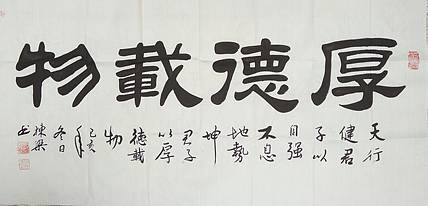 厚德載物
天行
健君
子以
自强
不息
地勢
坤
君子
以厚
德載
物
己亥
年
冬日
书